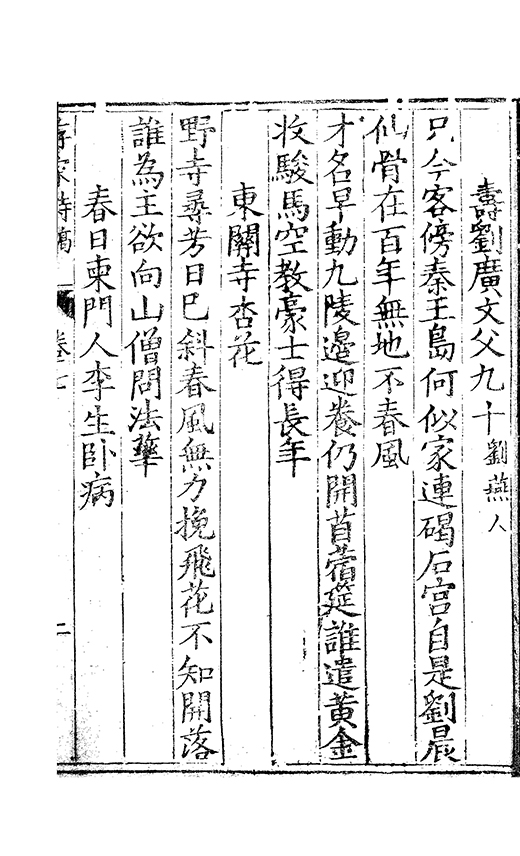 壽劉廣文父九十劉燕人
只今客傍秦王島何似家連碣石宮自是劉晨
仙骨在百年無地不春風
才名早動九陵邉迎養仍開苜蓿筵誰遣黃金
收駿馬空教豪士得長年
東關寺杏花
野寺尋芳日已斜春風無力挽飛花不知開落
誰為主欲向山僧問法華
春日東門人李生卧病
家詩稿 卷七 二